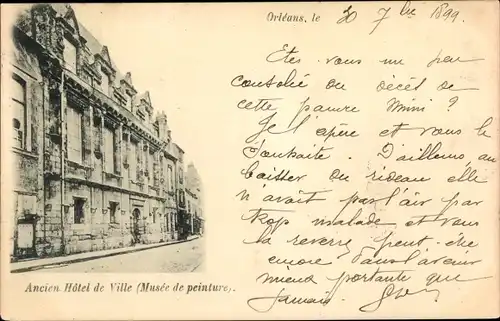 Orléans, le 30 7bre 1899
Etes vous un peu
consolée du décès de
cette pauvre Mimi ?
Je l'espère et vous le
souhaite. D'ailleurs, au
baisser du rideau elle
n'avait pas l'air par
trop malade et vous
la reverrez peut-être
encore dans l'avenir
mieux portante que
jamais.
Ancien Hôtel de Ville (Musée de peinture).